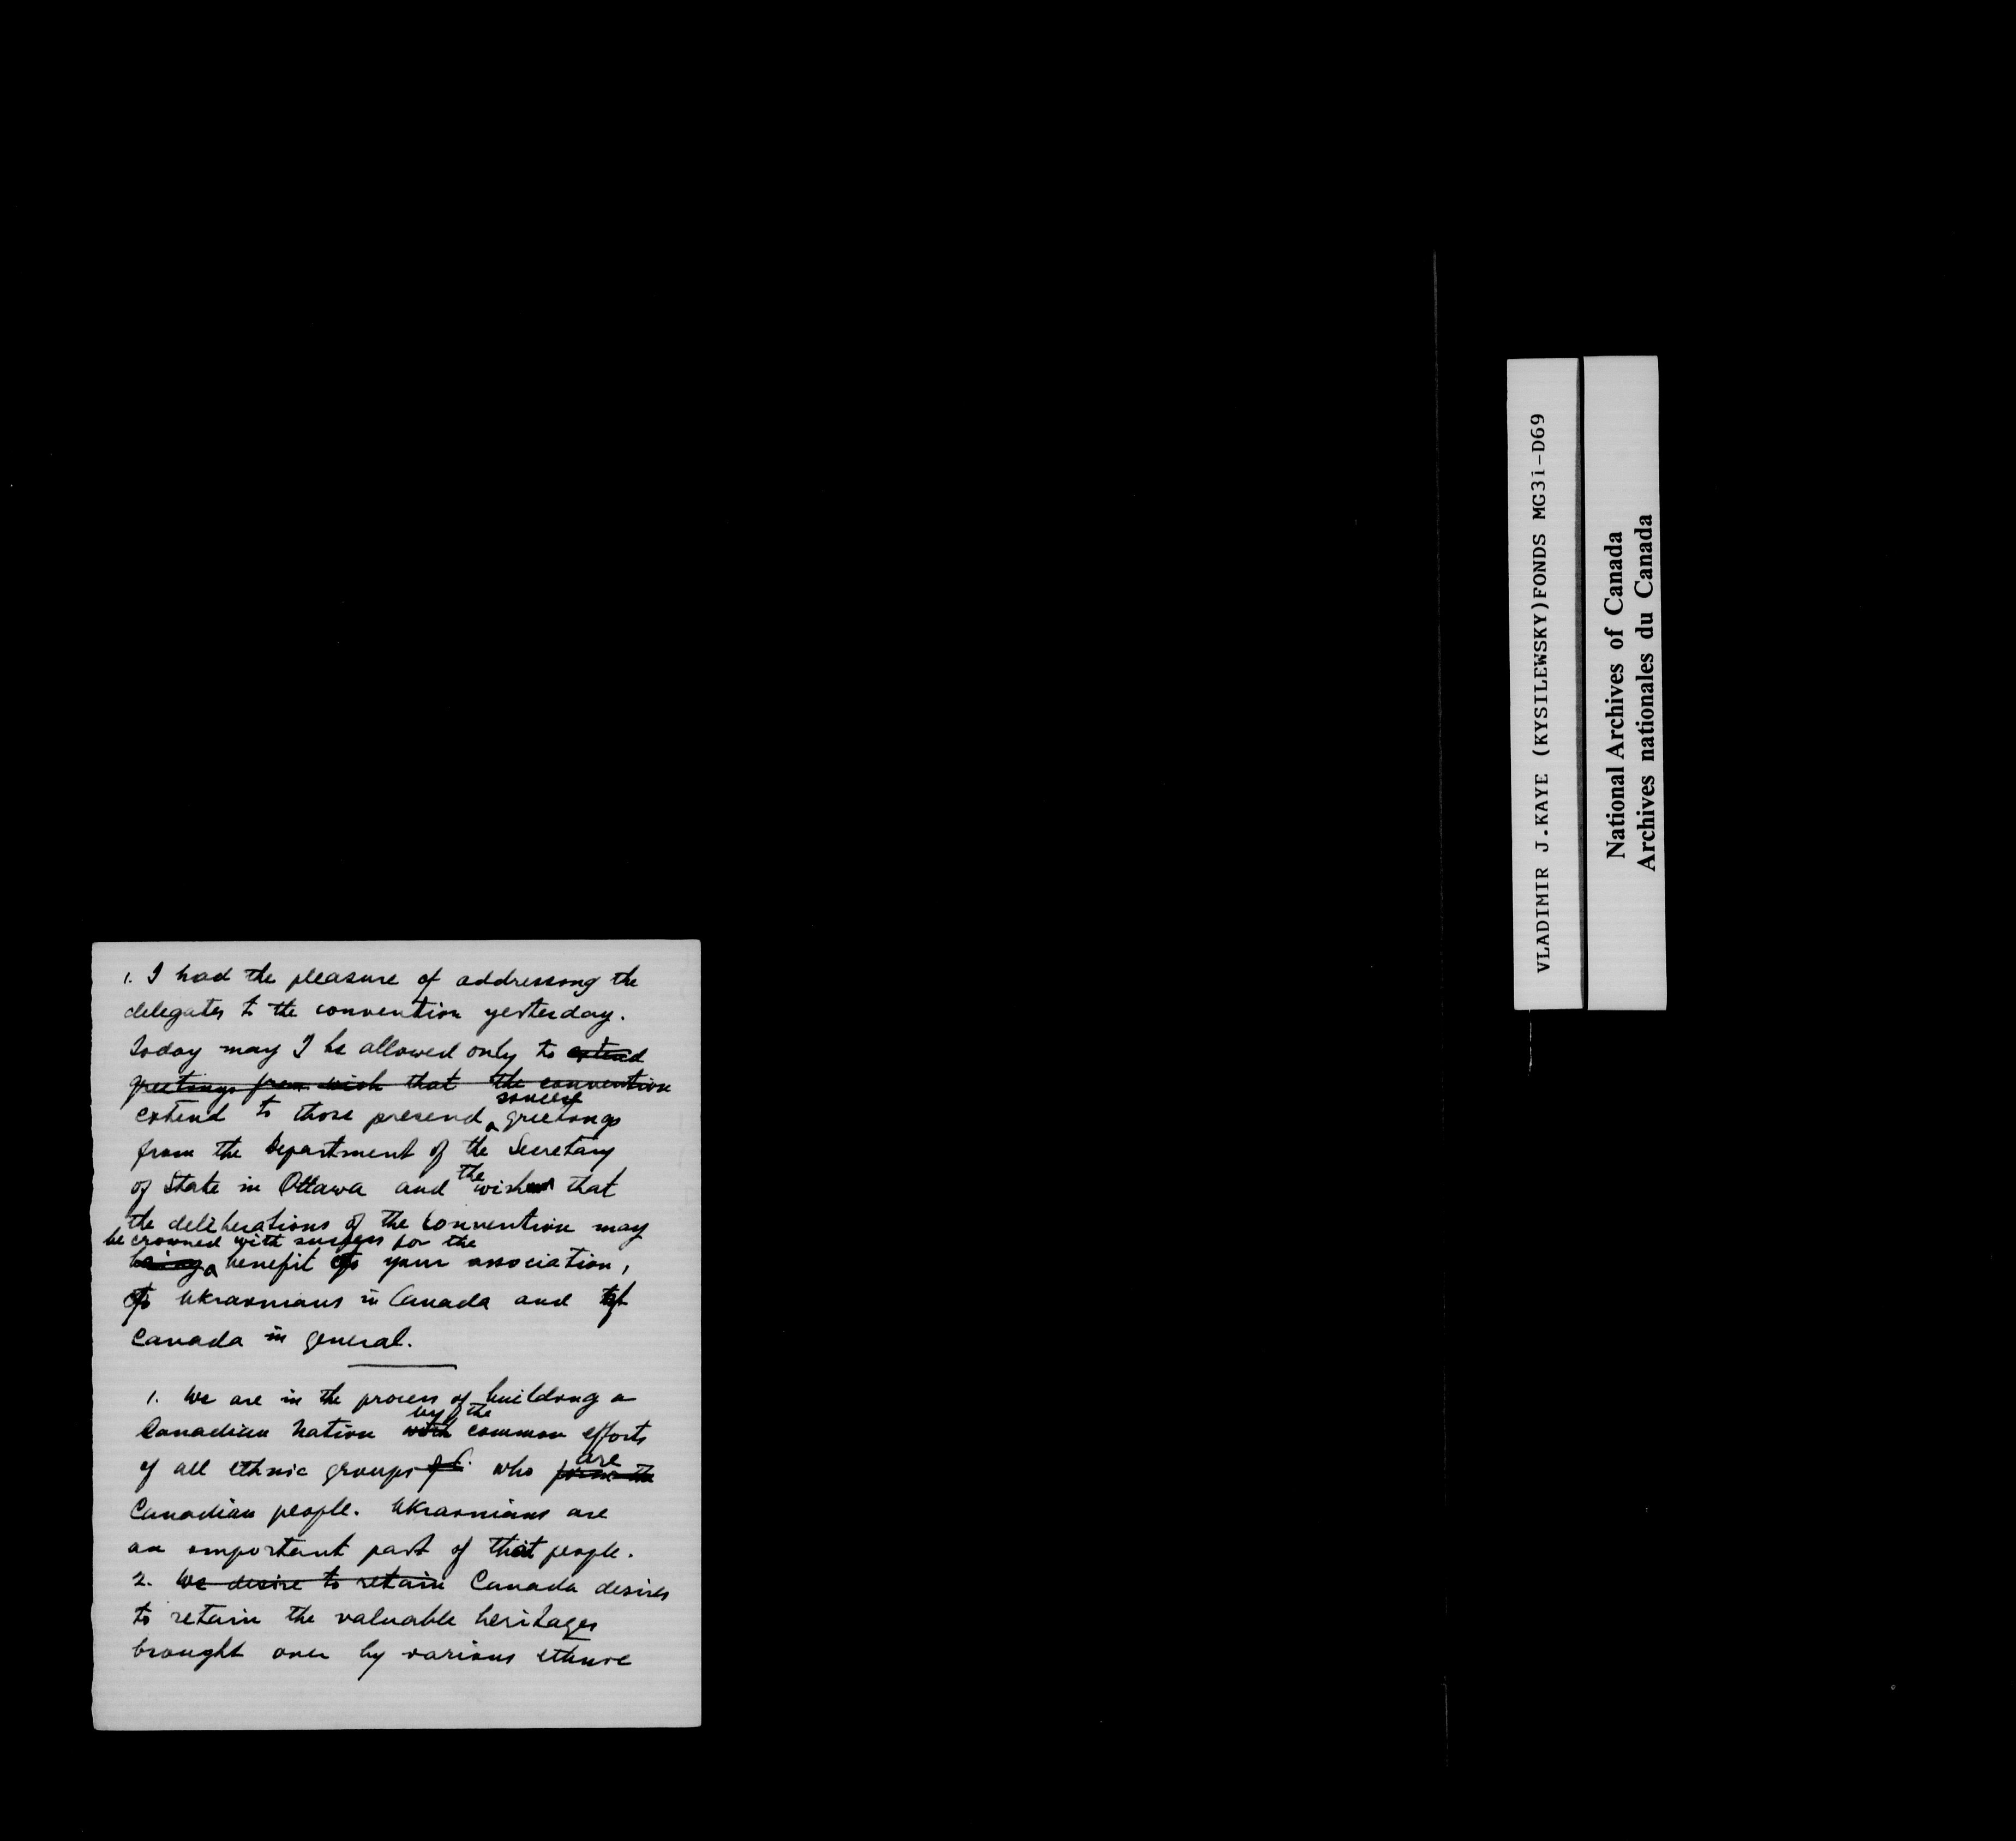 1. I had the pleasure of addressing the
delegates to the convention yesterday.
Today may I be allowed only to extend
greetings from wish that the convention
sincere
extend to those presend greetings
from the Department of the Secretary
of State in Ottawa and the wish that
the deliberations of the Convention may
be crowned with success for the
bring a benefit of your association,
of Ukrainians in Canada and of
Canada in general.
1. We are in the process of building a
by the
Canadian Nation with common efforts
are
of all ethnic groups who form the
Canadian people. Ukrainians are
an important part of that people.
2. We desire to retain Canada desires
to retain the valuable heritages
brought over by various ethnic
VLADIMIR J.KAYE (KYSILEWSKY)FONDS MG31-D69
National Archives of Canada
Archives nationales du Canada